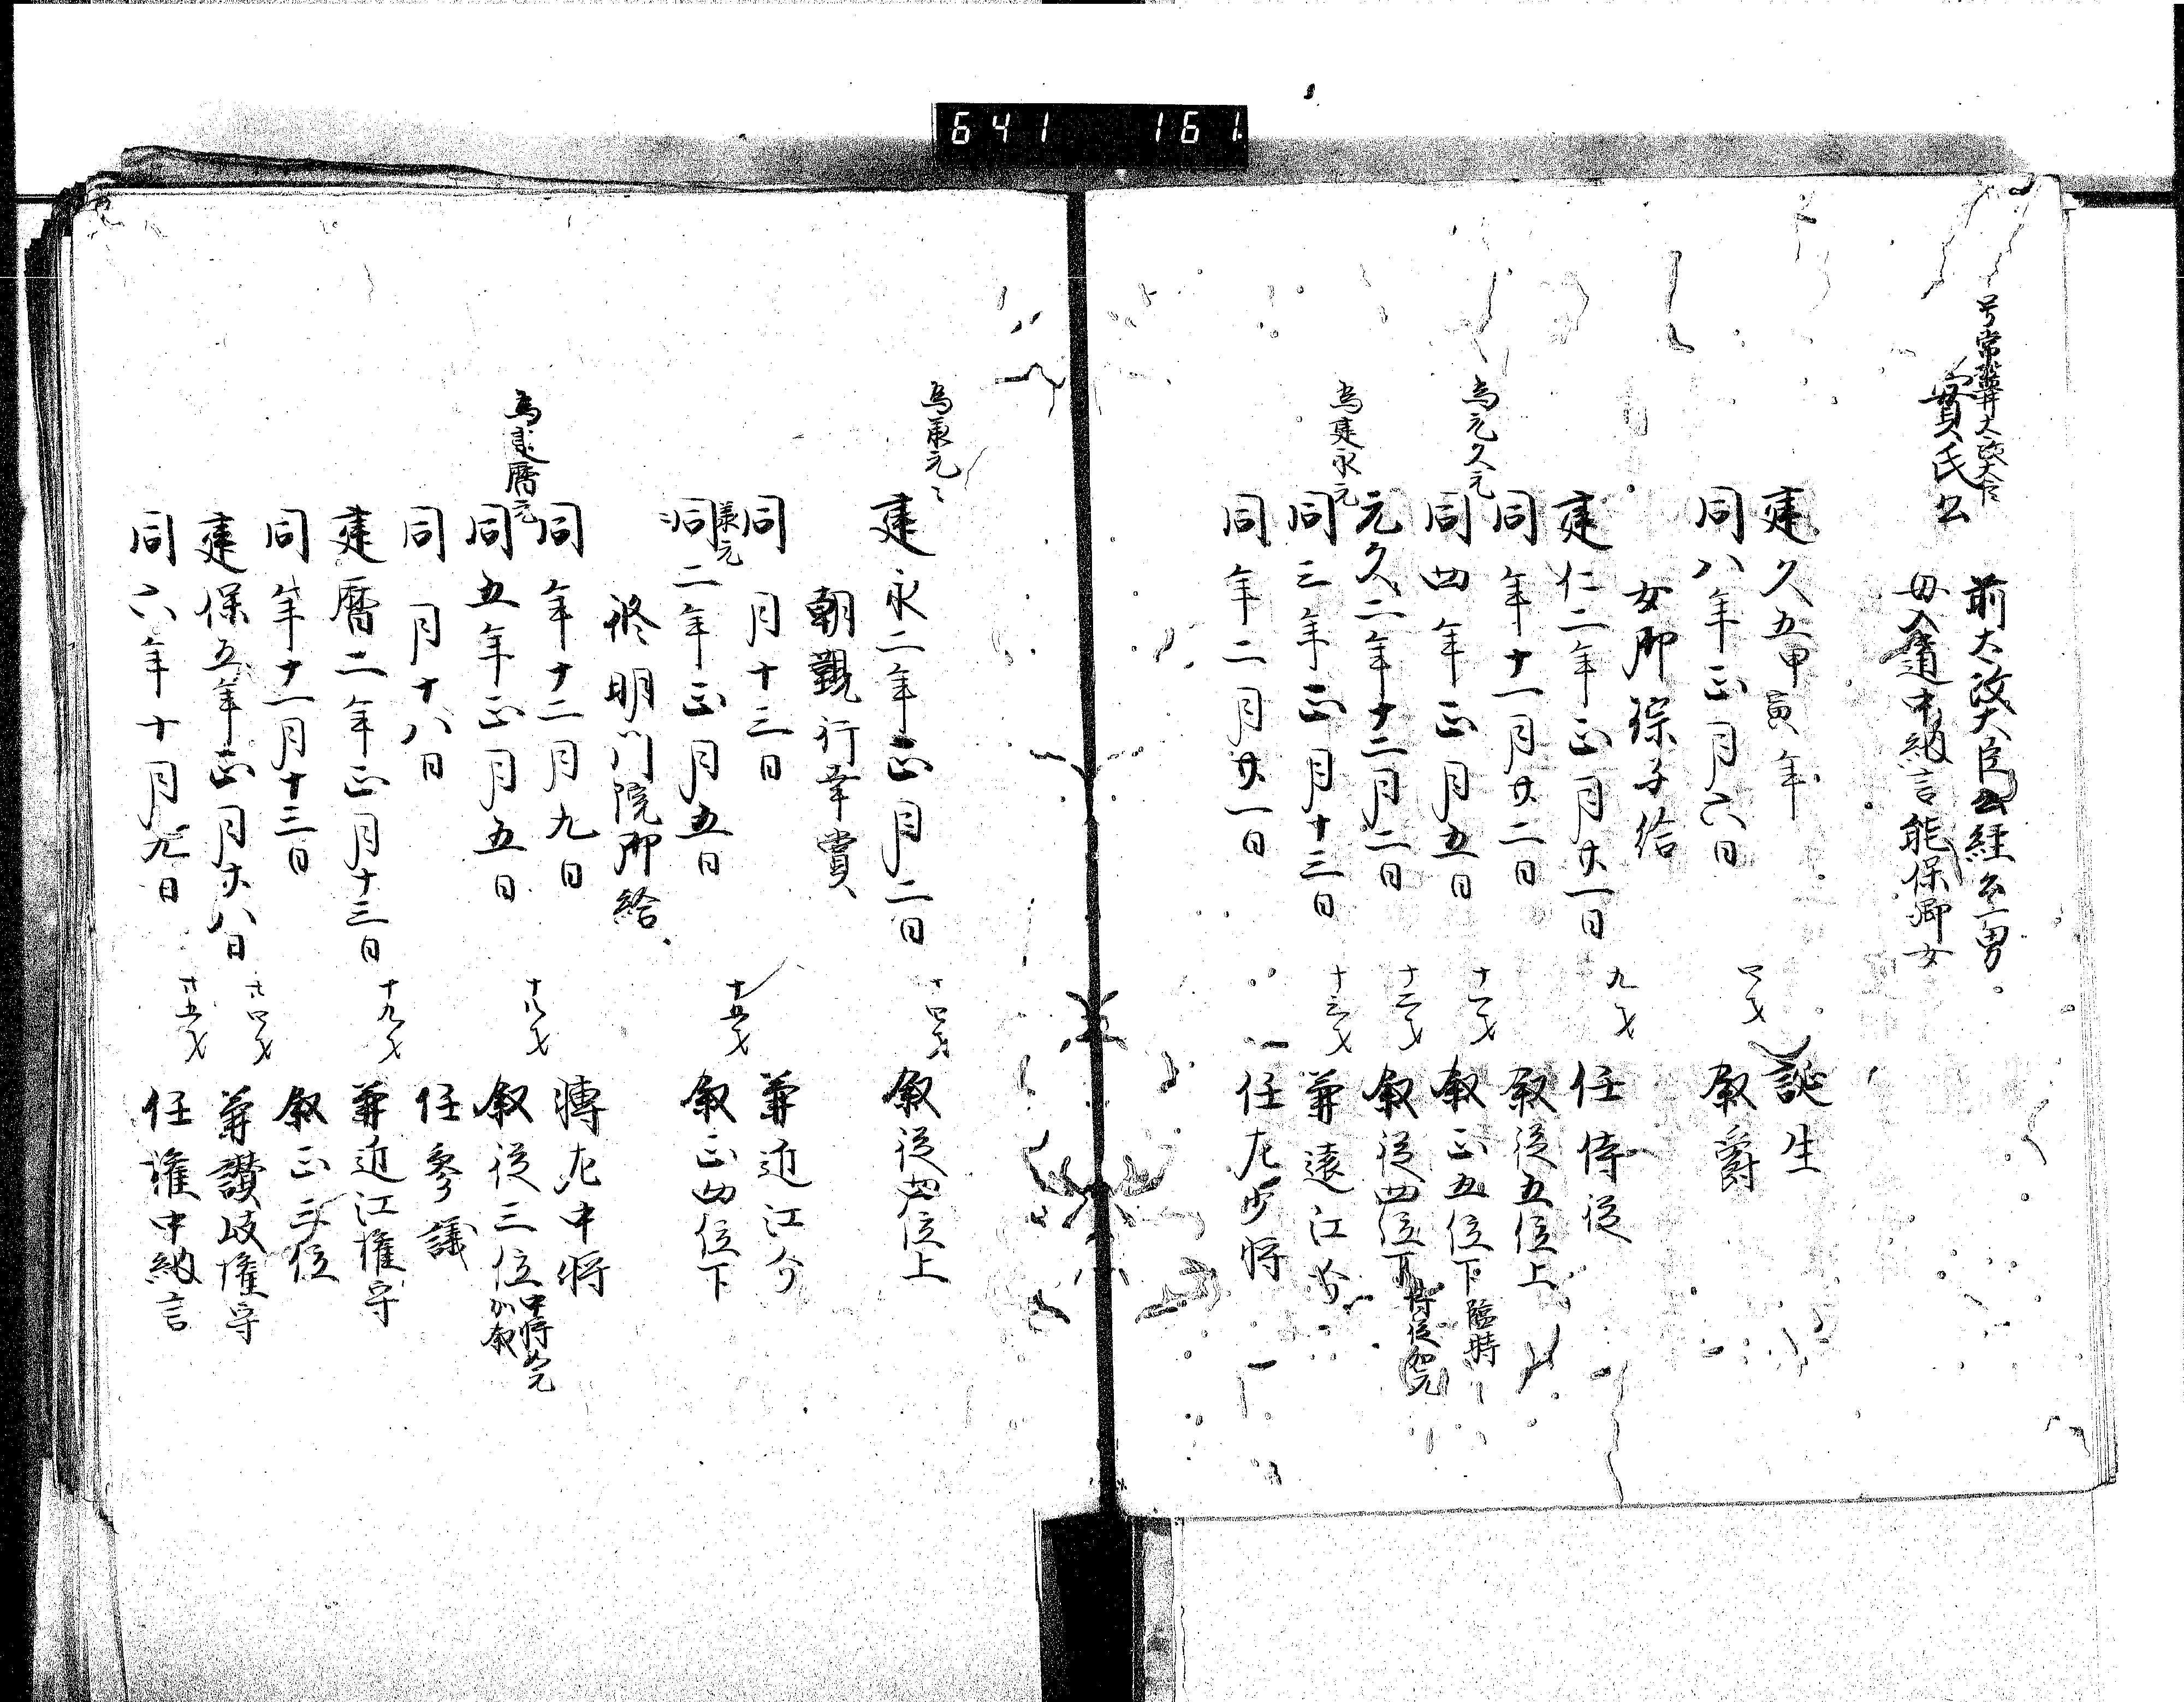 641 161
号常磐井太政大臣
實氏公
前太政大臣公経公一男
母入道中納言能保卿女
建久五甲寅年 誕生
同八年正月六日 四才 叙爵
女御琮子給
建仁二年正月廿一日 九才 任侍従
同年十一月廿二日 叙従五位上
同四年正月五日 十一才 叙正五位下 臨時
為元久元
元久二年十二月二日 十二才 叙従四位下 侍従如元
同三年正月十三日 十三才 兼遠江介
為建永元
同年二月廿一日 任左少将
建永二年正月二日 十四才 叙従四位上
為承元々
朝覲行幸賞
同月十三日 兼近江介
承元
同二年正月五日 十五才 叙正四位下
修明門院御給
同年十二月九日 轉左中将
同五年正月五日 十八才 叙従三位 中将如元 加叙
為建暦元
同月十八日 任參議
建暦二年正月十三日 十九才 兼近江権守
同年十一月十三日 叙正三位
建保五年正月廿八日 廿四才 兼讃岐権守
同六年十月九日 廿五才 任権中納言